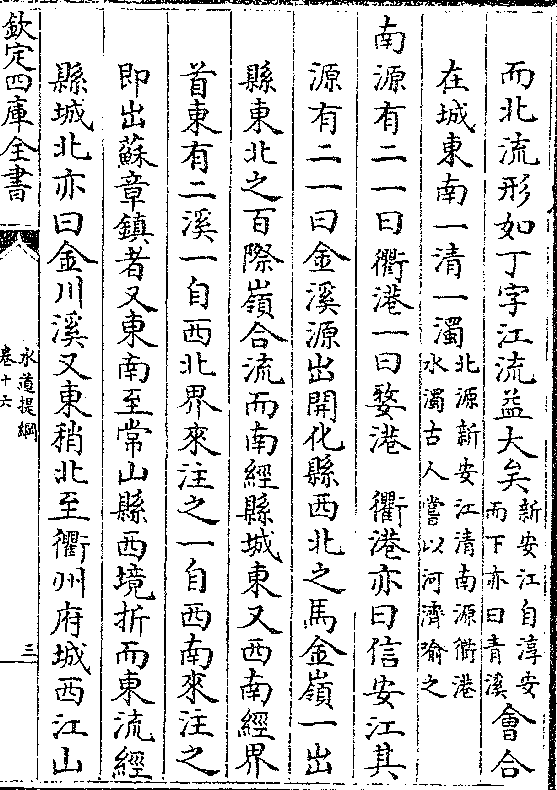 而北流形如丁字江流益大矣新安江自淳安而下亦曰青溪會合
在城東南一清一濁北源新安江清南源衢港水濁古人嘗以河濟喻之
南源有二一曰衢港一曰婺港 衢港亦曰信安江其
源有二一曰金溪源出開化縣西北之馬金嶺一出
縣東北之百際嶺合流而南經縣城東又西南經界
首東有二溪一自西北界來注之一自西南來注之
即出蘇章鎮者又東南至常山縣西境折而東流經
縣城北亦曰金川溪又東稍北至衢州府城西江山
欽定四庫全書
水道提綱
卷十六
三